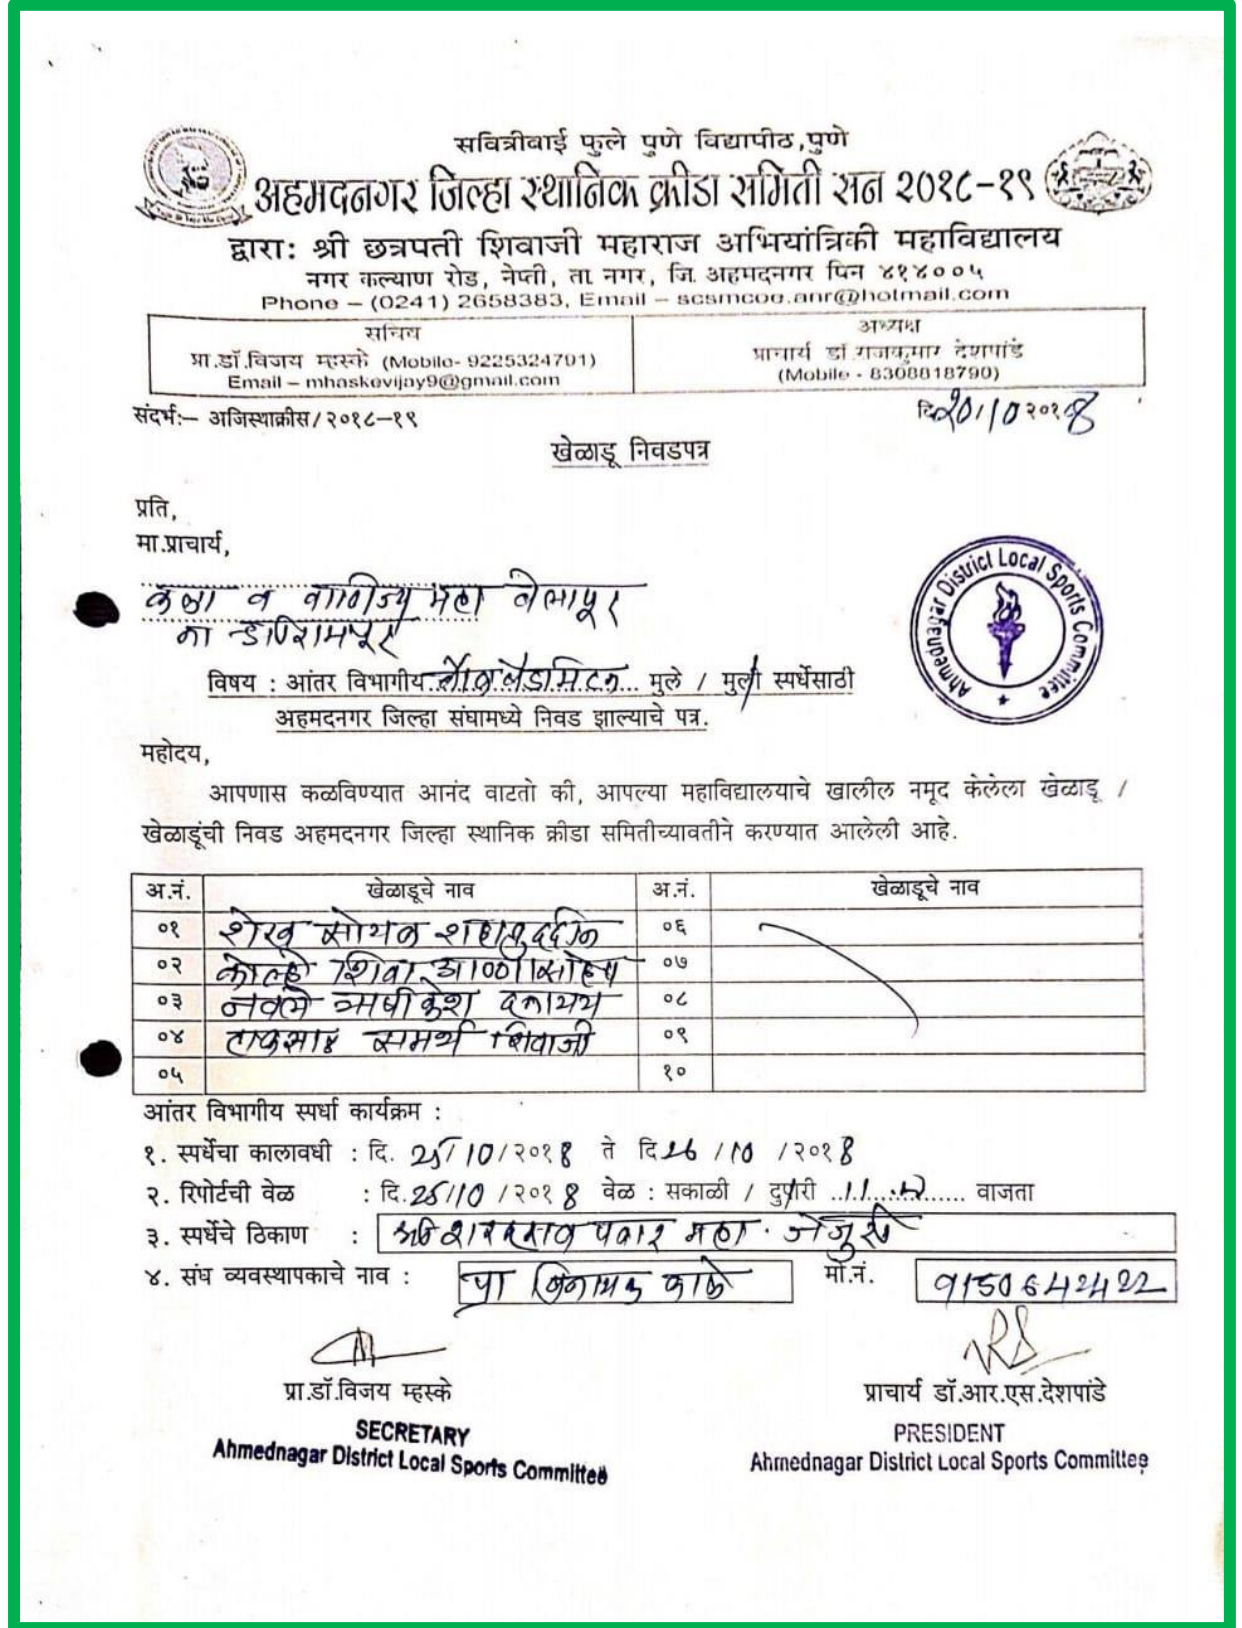 सवित्रीबाई फुले पुणे विद्यापीठ,पुणे
अहमदनगर जिल्हा स्थानिक क्रीडा समिती सन २०१८-१९
द्वारा: श्री छत्रपती शिवाजी महाराज अभियांत्रिकी महाविद्यालय
नगर कल्याण रोड, नेप्ती, ता. नगर, जि. अहमदनगर पिन ४१४००५
Phone – (0241) 2658383, Email – scsmcoe.anr@hotmail.com
सचिव
प्रा.डॉ.विजय म्हस्के (Mobile- 9225324701)
Email – mhaskevijay9@gmail.com
अध्यक्ष
प्राचार्य डॉ.राजकुमार देशपांडे
(Mobile - 8308818790)
संदर्भ:– अजिस्थाक्रीस/२०१८–१९
दि.20/10२०१8
खेळाडू निवडपत्र
प्रति,
मा.प्राचार्य,
कला व वाणिज्य महा बेलापूर
Ahmednagar District Local Sports Committee
विषय : आंतर विभागीय बॉल बॅडमिंटन मुले / मुली स्पर्धेसाठी
अहमदनगर जिल्हा संघामध्ये निवड झाल्याचे पत्र.
महोदय,
आपणास कळविण्यात आनंद वाटतो की, आपल्या महाविद्यालयाचे खालील नमूद केलेला खेळाडू /
खेळाडूंची निवड अहमदनगर जिल्हा स्थानिक क्रीडा समितीच्यावतीने करण्यात आलेली आहे.
अ.नं. खेळाडूचे नाव अ.नं. खेळाडूचे नाव
०१ शेख ०६
०२ कोल्हे शिवा ०७
०३ नवले ऋषीकेश ०८
०४ समर्थ शिवाजी ०९
०५ १०
आंतर विभागीय स्पर्धा कार्यक्रम :
१. स्पर्धेचा कालावधी : दि. 25/10/२०१8 ते दि 26 /10 /२०१8
२. रिपोर्टची वेळ : दि.25/10 /२०१8 वेळ : सकाळी / दुपारी ..11........ वाजता
३. स्पर्धेचे ठिकाण : शरदराव पवार महा. जेजुरी
४. संघ व्यवस्थापकाचे नाव : प्रा विनायक काळे मो.नं. 9150642422
प्रा.डॉ.विजय म्हस्के
SECRETARY
Ahmednagar District Local Sports Committee
प्राचार्य डॉ.आर.एस.देशपांडे
PRESIDENT
Ahmednagar District Local Sports Committee